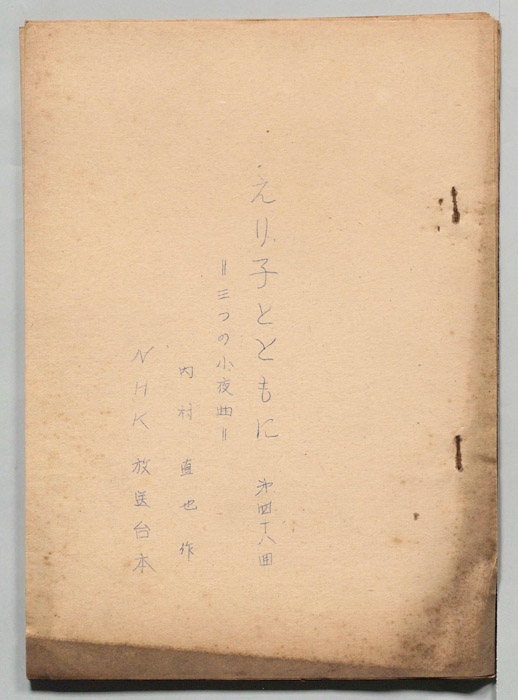 えり子とともに 第四十八回
＝三つの小夜曲＝
内村直也作
NHK放送台本